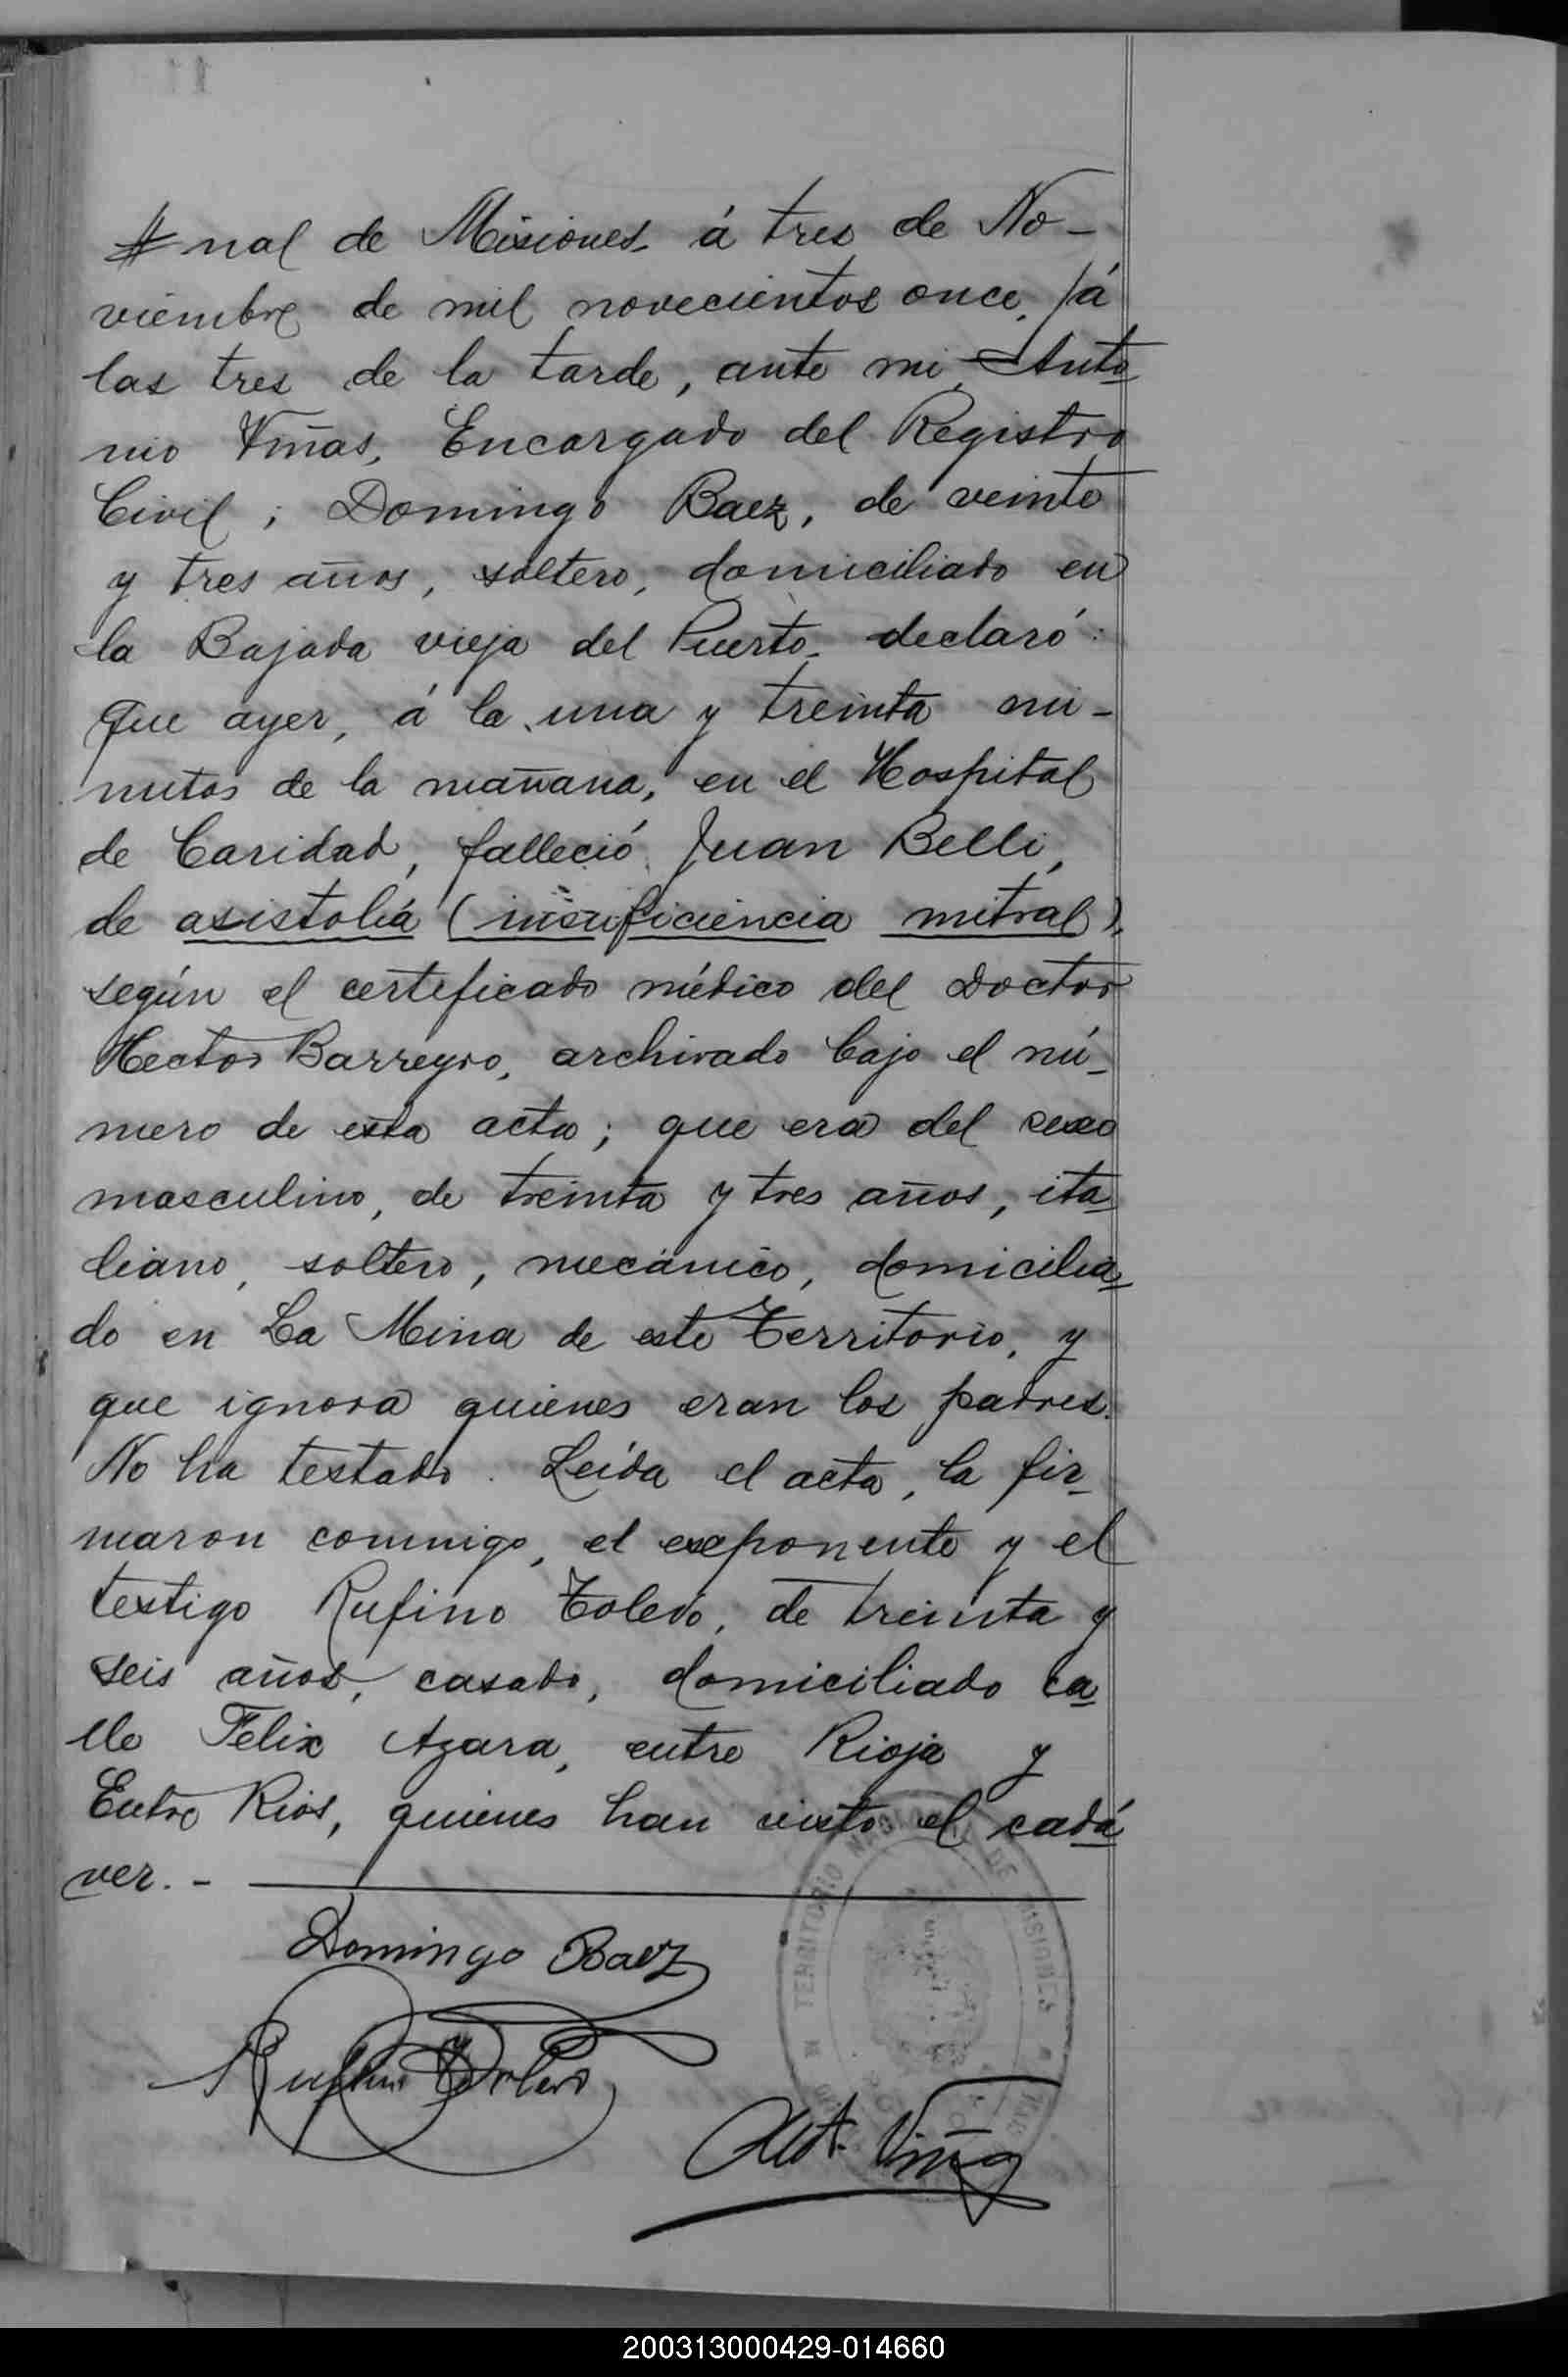 # nal de Misiones á tres de No-
viembre de mil novecientos once, á
las tres de la tarde, ante mi, Anto
nio Viñas, Encargado del Registro
Civil; Domingo Baez, de veinte
y tres años, soltero, domiciliado en
la Bajada vieja del Puerto, declaró:
Que ayer, á la una y treinta mi-
nutos de la mañana, en el Hospital
de Caridad, falleció Juan Belli,
de asistolia (insuficiencia mitral),
según el certificado médico del Doctor
Hector Barreyro, archivado bajo el nú-
mero de esta acta; que era del sexo
masculino, de treinta y tres años, ita
liano, soltero, mecánico, domicilia
do en La Mina de este Territorio, y
que ignora quienes eran los padres.
No ha testado. Leída el acta, la fir-
maron conmigo, el exponente y el
testigo Rufino Toledo, de treinta y
seis años, casado, domiciliado ca
lle Felix Azara, entre Rioja y
Entre Rios, quienes han visto el cadá
ver.-
Domingo Baez
Rufino Toledo
Ant. Viñas
TERRITORIO NACIONAL DE MISIONES
200313000429-014660